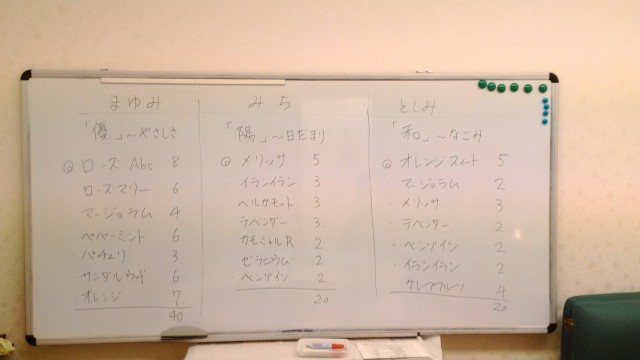 まゆみ
「優」～やさしさ
◎ ローズ Abs 8
・ローズマリー 6
・マージョラム 4
・ペパーミント 6
・パチュリ 3
・サンダルウッド 6
・オレンジ 7
40
みち
「陽」～日だまり
◎ メリッサ 5
・イランイラン 3
・ベルガモット 3
・ラベンダー 3
カモミールR 2
・ゼラニウム 2
・ベンゾイン 2
20
としみ
「和」～なごみ
◎ オレンジスイート 5
・マージョラム 2
・メリッサ 3
・ラベンダー 2
・ベンゾイン 2
・イランイラン 2
グレープフルーツ 4
20